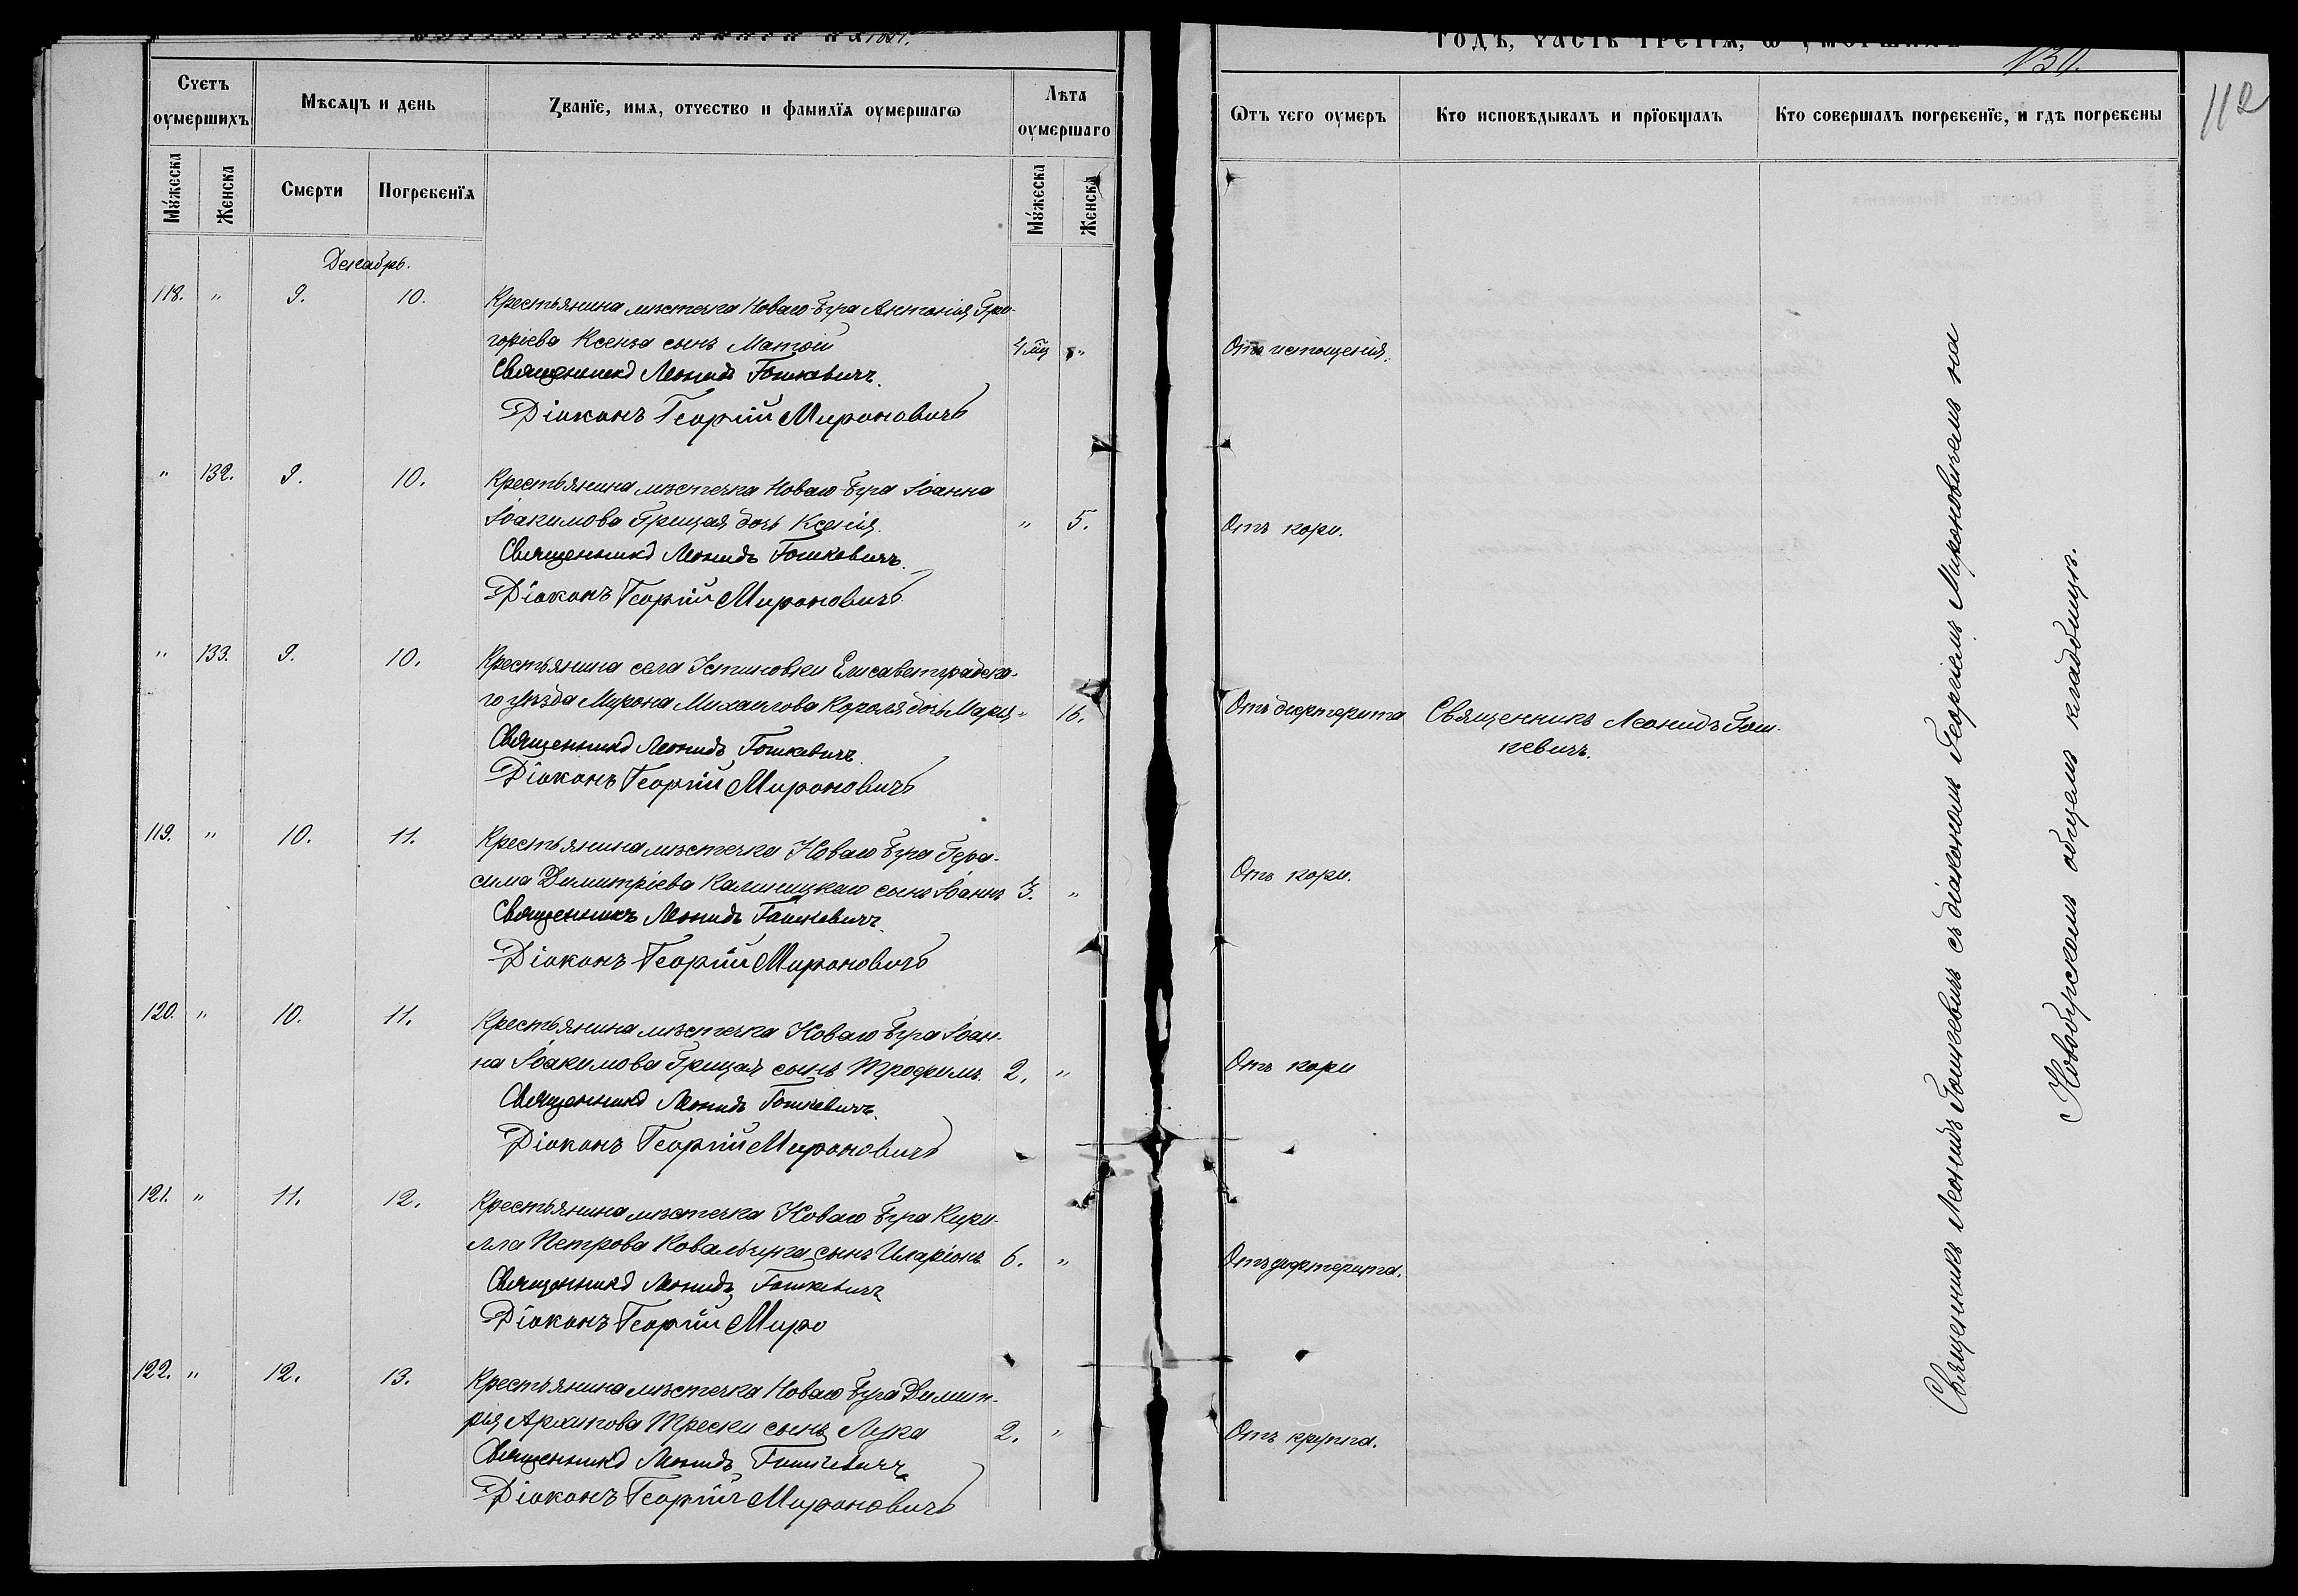 1891.
годъ, часть третїѧ, ѡ оумершихъ
130.
112
Счетъ оумершихъ
Мѣсѧцъ и день
Званїе, имѧ, отчество и фамилїѧ оумершагѡ
Лѣта оумершаго
Мꙋжеска
Женска
Смерти
Погребенїѧ
Мꙋжеска
Женска
Ѿтъ чего оумеръ
Кто исповѣдывалъ и прїобщалъ
Кто совершалъ погребенїе, и гдѣ погребены
Декабрь.
118. " 9. 10. Крестьянина мѣстечка Новаго Буга Антонія Гри-
горіева Ксенза сынъ Матѳій 4 мц " Отъ истощенія.
Священникъ Леонидъ Гошкевичъ.
Діаконъ Георгій Мироновичъ
" 132. 9. 10. Крестьянина мѣстечка Новаго Буга Іоанна
Іоакимова Грицая дочь Ксенія. " 5. Отъ кори.
Священникъ Леонидъ Гошкевичъ.
Діаконъ Георгій Мироновичъ
" 133. 9. 10. Крестьянина села Устиновки Елисаветградска-
го уѣзда Мирона Михаилова Короля дочь Марія " 16. Отъ дифтерита Священникъ Леонидъ Гош-
кевичъ.
Священникъ Леонидъ Гошкевичъ.
Діаконъ Георгій Мироновичъ
119. " 10. 11. Крестьянина мѣстечка Новаго Буга Гера-
сима Димитріева Калиницкаго сынъ Іоаннъ 3. " Отъ кори.
Священникъ Леонидъ Гошкевичъ.
Діаконъ Георгій Мироновичъ
120. " 10. 11. Крестьянина мѣстечка Новаго Буга Іоан-
на Іоакимова Грицая сынъ Трофимъ. 2. " Отъ кори
Священникъ Леонидъ Гошкевичъ.
Діаконъ Георгій Мироновичъ
121. " 11. 12. Крестьянина мѣстечка Новаго Буга Кири-
лла Петрова Ковальчука сынъ Иларіонъ 6. " Отъ дифтерита.
Священникъ Леонидъ Гошкевичъ
Діаконъ Георгій Миро
122. " 12. 13. Крестьянина мѣстечка Новаго Буга Димит-
рія Архипова Трески сынъ Лука 2. " Отъ крупа.
Священникъ Леонидъ Гошкевичъ
Діаконъ Георгій Мироновичъ
Священникъ Леонидъ Гошкевичъ съ діакономъ Георгіемъ Мироновичемъ на
Новобугскомъ общемъ кладбищѣ.